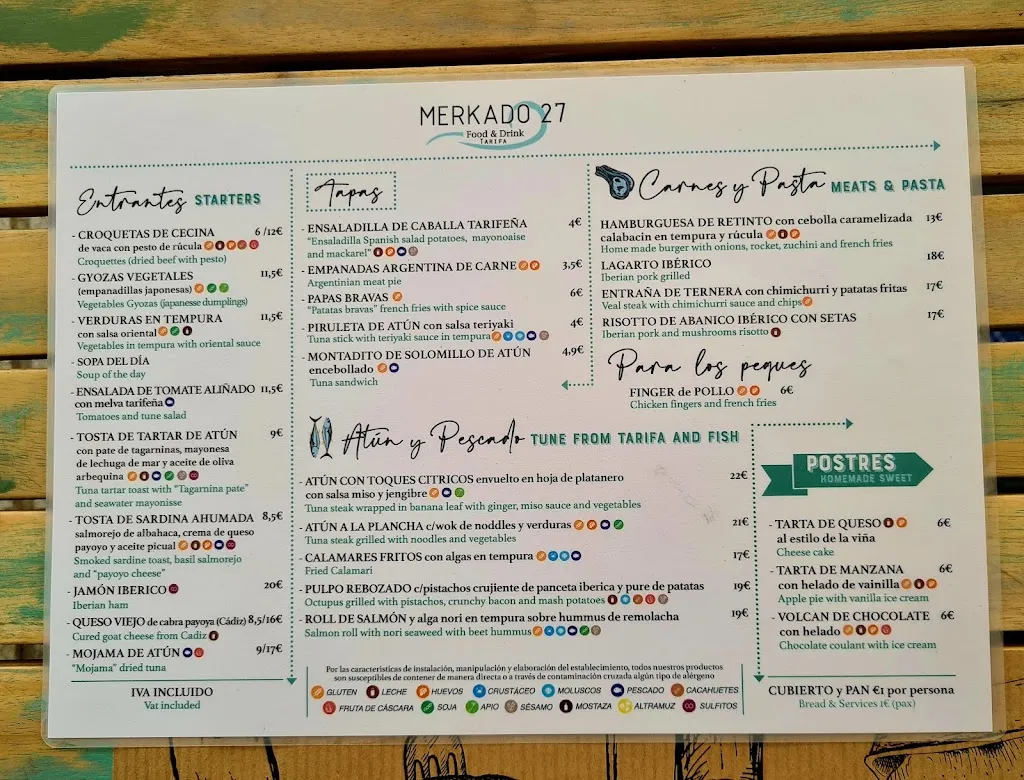 MERKADO 27
Food & Drink
TARIFA
Entrantes STARTERS
- CROQUETAS DE CECINA 6 /12€
de vaca con pesto de rúcula
Croquettes (dried beef with pesto)
- GYOZAS VEGETALES 11,5€
(empanadillas japonesas)
Vegetables Gyozas (japanesse dumplings)
- VERDURAS EN TEMPURA 11,5€
con salsa oriental
Vegetables in tempura with oriental sauce
- SOPA DEL DÍA
Soup of the day
- ENSALADA DE TOMATE ALIÑADO 11,5€
con melva tarifeña
Tomatoes and tune salad
- TOSTA DE TARTAR DE ATÚN 9€
con pate de tagarninas, mayonesa
de lechuga de mar y aceite de oliva
arbequina
Tuna tartar toast with "Tagarnina pate"
and seawater mayonisse
- TOSTA DE SARDINA AHUMADA 8,5€
salmorejo de albahaca, crema de queso
payoyo y aceite picual
Smoked sardine toast, basil salmorejo
and "payoyo cheese"
- JAMÓN IBERICO 20€
Iberian ham
- QUESO VIEJO de cabra payoya (Cádiz) 8,5/16€
Cured goat cheese from Cadiz
- MOJAMA DE ATÚN 9/17€
"Mojama" dried tuna
IVA INCLUIDO
Vat included
Tapas
- ENSALADILLA DE CABALLA TARIFEÑA 4€
"Ensaladilla Spanish salad potatoes, mayonoaise
and mackarel"
- EMPANADAS ARGENTINA DE CARNE 3,5€
Argentinian meat pie
- PAPAS BRAVAS 6€
"Patatas bravas" french fries with spice sauce
- PIRULETA DE ATÚN con salsa teriyaki 4€
Tuna stick with teriyaki sauce in tempura
- MONTADITO DE SOLOMILLO DE ATÚN 4,9€
encebollado
Tuna sandwich
Carnes y Pasta MEATS & PASTA
HAMBURGUESA DE RETINTO con cebolla caramelizada 13€
calabacin en tempura y rúcula
Home made burger with onions, rocket, zuchini and french fries
LAGARTO IBÉRICO 18€
Iberian pork grilled
ENTRAÑA DE TERNERA con chimichurri y patatas fritas 17€
Veal steak with chimichurri sauce and chips
RISOTTO DE ABANICO IBÉRICO CON SETAS 17€
Iberian pork and mushrooms risotto
Para los peques
FINGER de POLLO 6€
Chicken fingers and french fries
Atún y Pescado TUNE FROM TARIFA AND FISH
- ATÚN CON TOQUES CITRICOS envuelto en hoja de platanero 22€
con salsa miso y jengibre
Tuna steak wrapped in banana leaf with ginger, miso sauce and vegetables
- ATÚN A LA PLANCHA c/wok de noddles y verduras 21€
Tuna steak grilled with noodles and vegetables
- CALAMARES FRITOS con algas en tempura 17€
Fried Calamari
- PULPO REBOZADO c/pistachos crujiente de panceta iberica y pure de patatas 19€
Octupus grilled with pistachos, crunchy bacon and mash potatoes
- ROLL DE SALMÓN y alga nori en tempura sobre hummus de remolacha 19€
Salmon roll with nori seaweed with beet hummus
Por las características de instalación, manipulación y elaboración del establecimiento, todos nuestros productos
son susceptibles de contener de manera directa o a través de contaminación cruzada algún tipo de alérgeno
GLUTEN LECHE HUEVOS CRUSTÁCEO MOLUSCOS PESCADO CACAHUETES
FRUTA DE CÁSCARA SOJA APIO SÉSAMO MOSTAZA ALTRAMUZ SULFITOS
POSTRES
HOMEMADE SWEET
- TARTA DE QUESO 6€
al estilo de la viña
Cheese cake
- TARTA DE MANZANA 6€
con helado de vainilla
Apple pie with vanilla ice cream
- VOLCAN DE CHOCOLATE 6€
con helado
Chocolate coulant with ice cream
CUBIERTO y PAN €1 por persona
Bread & Services 1€ (pax)